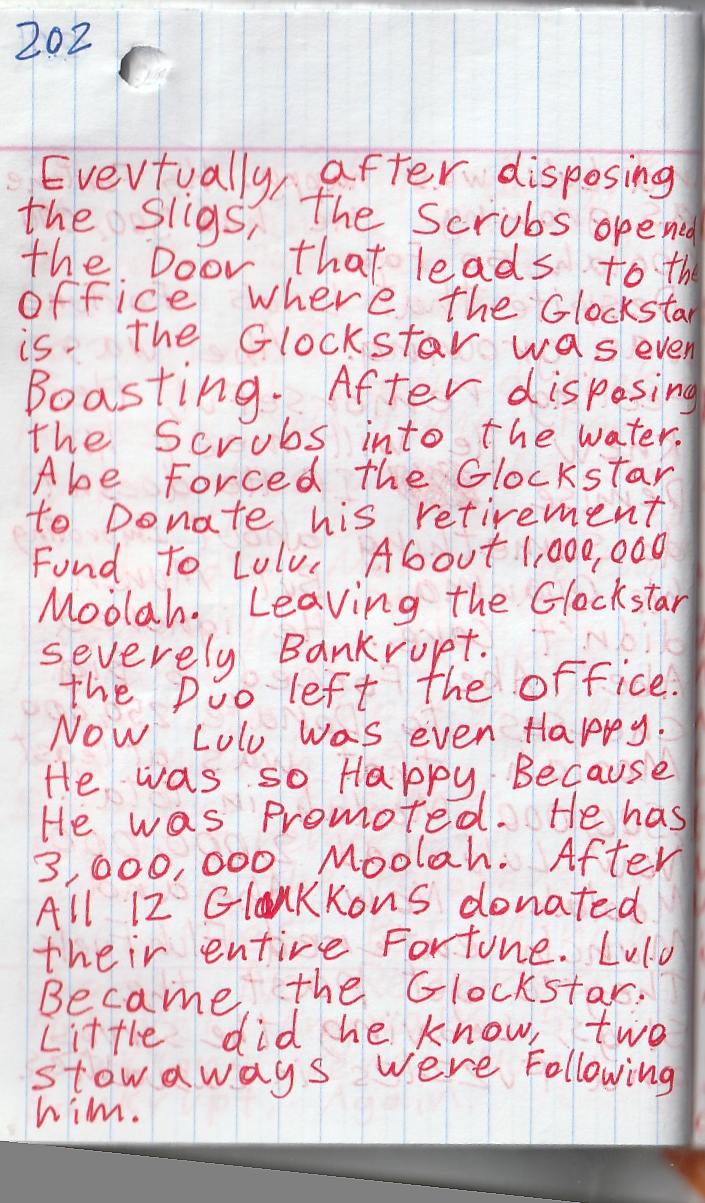 202
Evevtually, after disposing
the Sligs, the Scrubs opened
the Door that leads to the
office where the Glockstar
is. the Glockstar was even
Boasting. After disposing
the Scrubs into the water.
Abe Forced the Glockstar
to Donate his retirement
Fund to Lulu. About 1,000,000
Moolah. Leaving the Glockstar
severely Bankrupt.
the Duo left the office.
Now Lulu was even Happy.
He was so Happy Because
He was Promoted. He has
3,000,000 Moolah. After
All 12 Glukkons donated
their entire Fortune. Lulu
Became the Glockstar.
Little did he know, two
stowaways were Following
him.